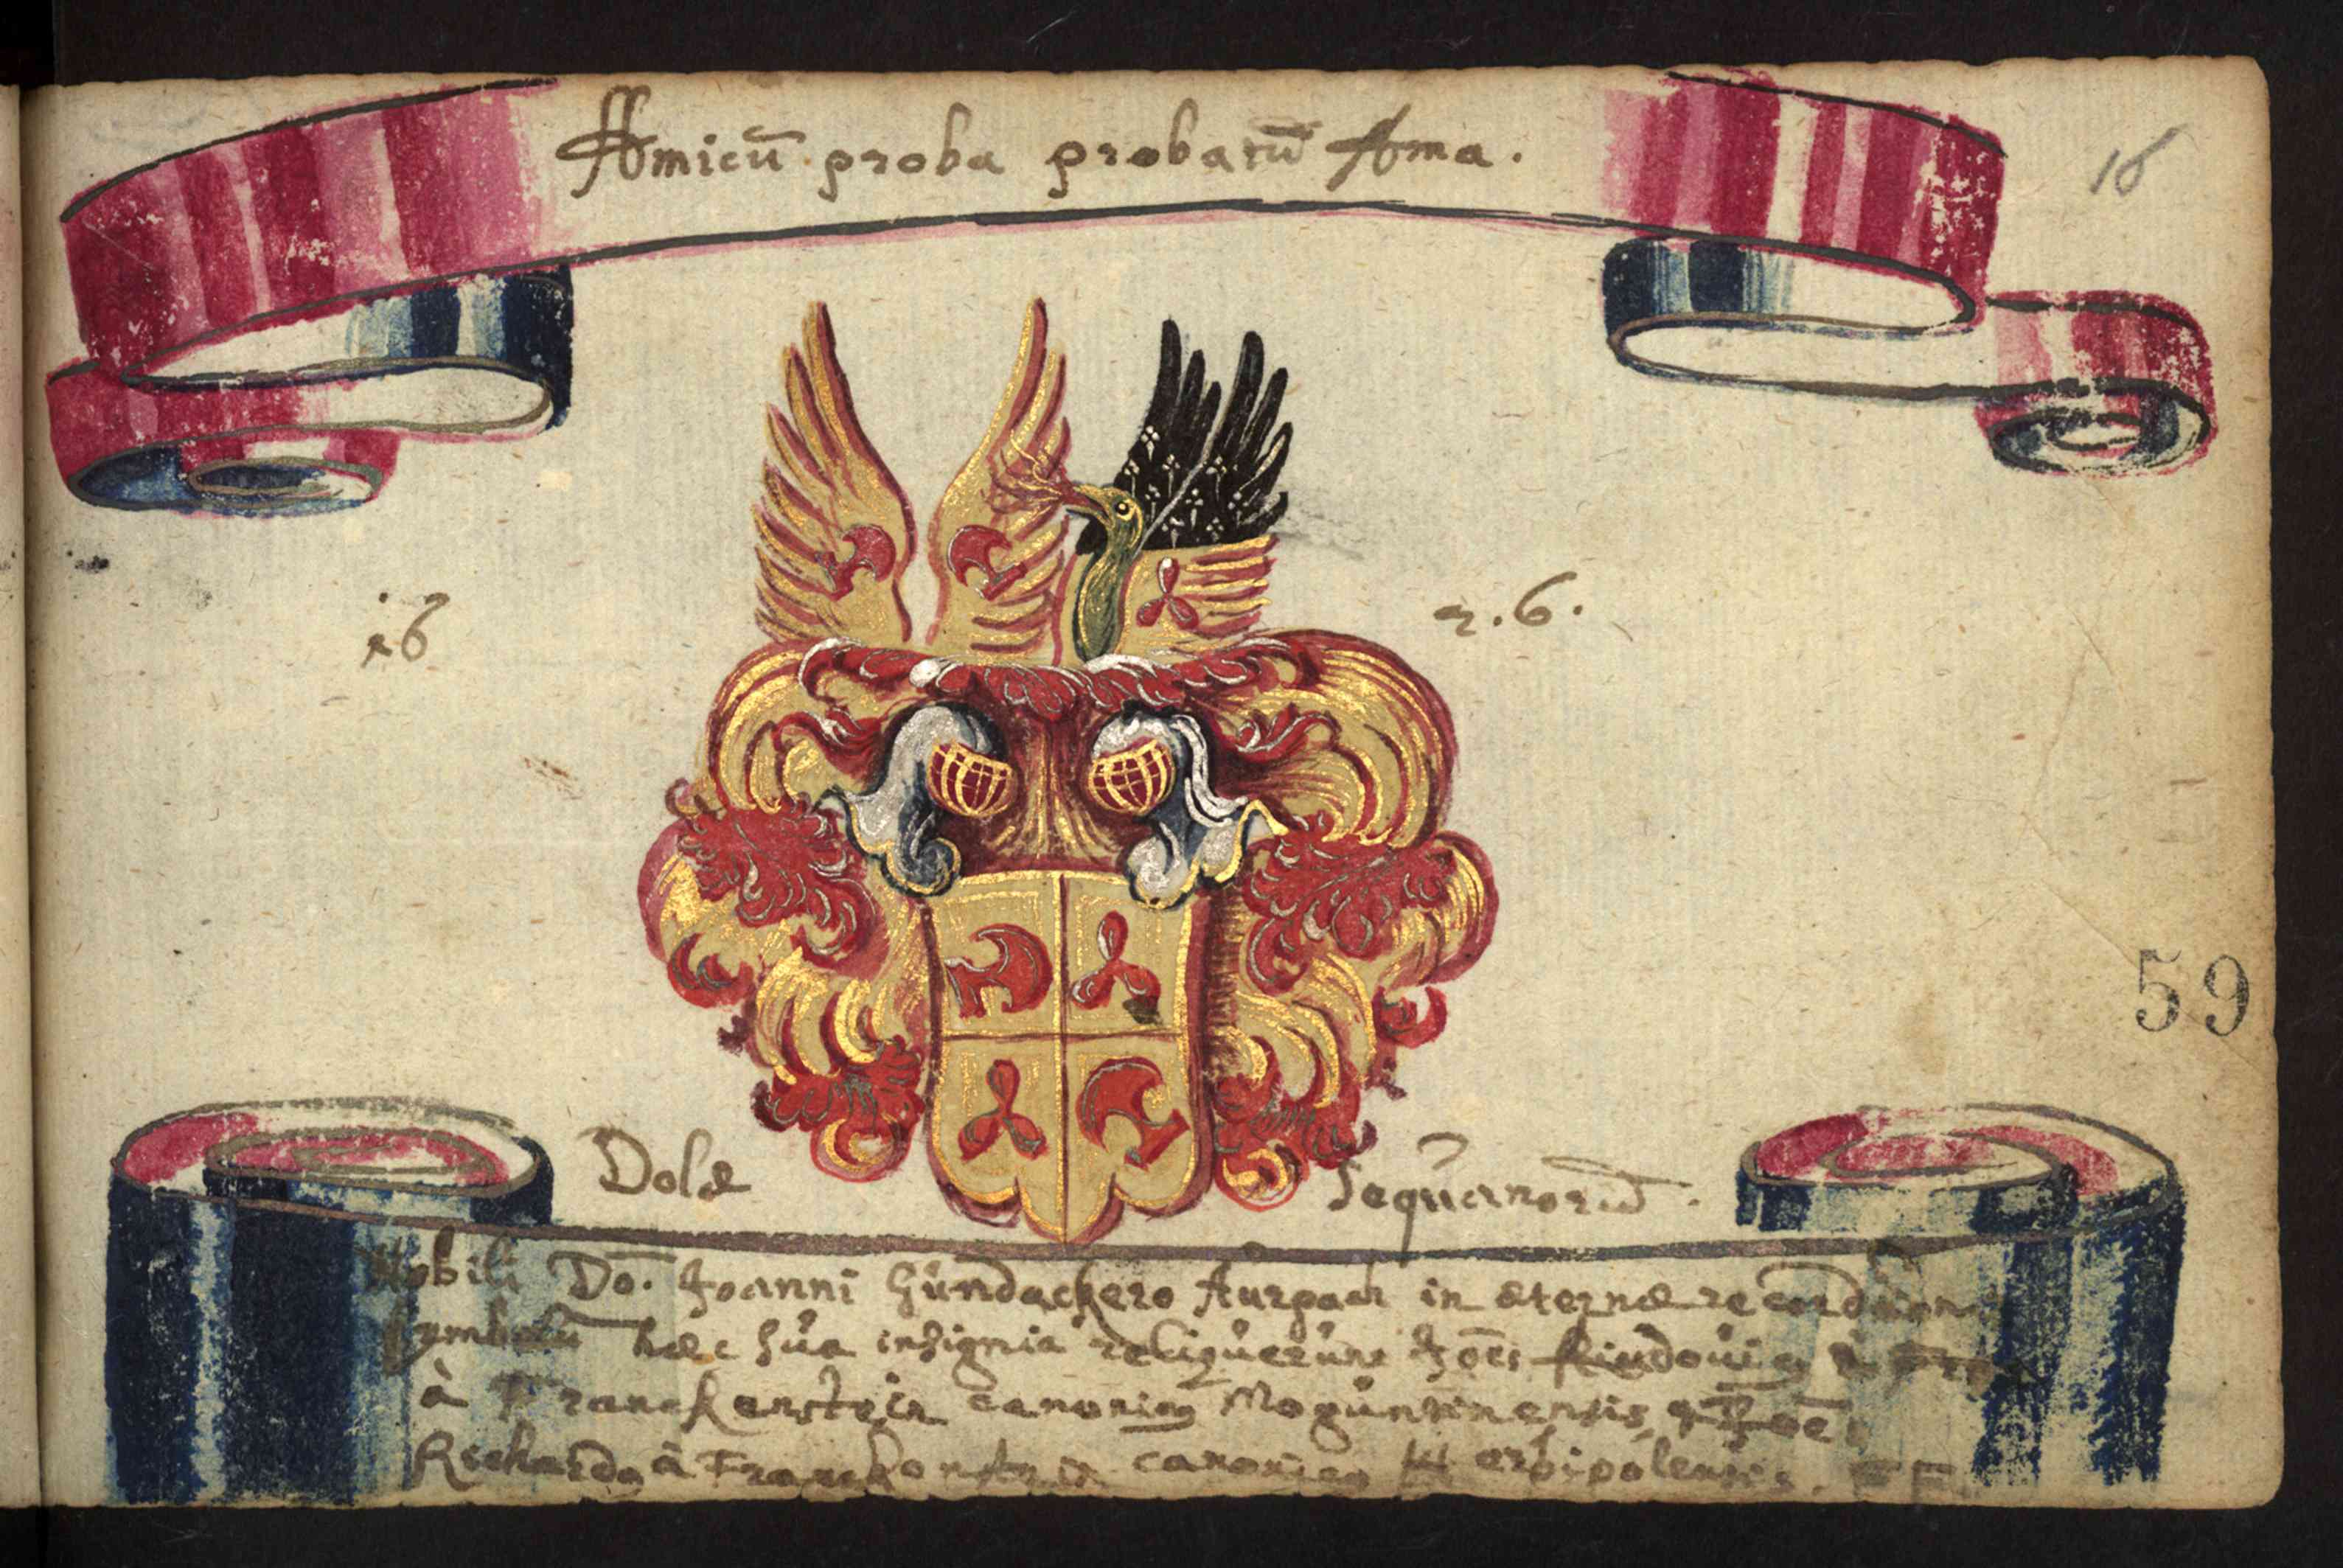 Amicū proba probatū Ama.
16
16
2.6.
59
Dolæ Sequanorū.
Nobili Do. Joanni Gundackero Aurpach in æternæ
symbolū hæc sua insignia reliquerunt Joēs
à Franckenstein canonicus Moguntinensis
Richardo à Franckenstein canonicus Herbipolensis.